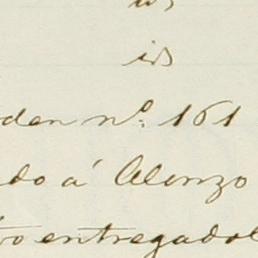 id
den nº. 161
do á Alonzo
ro entregadol